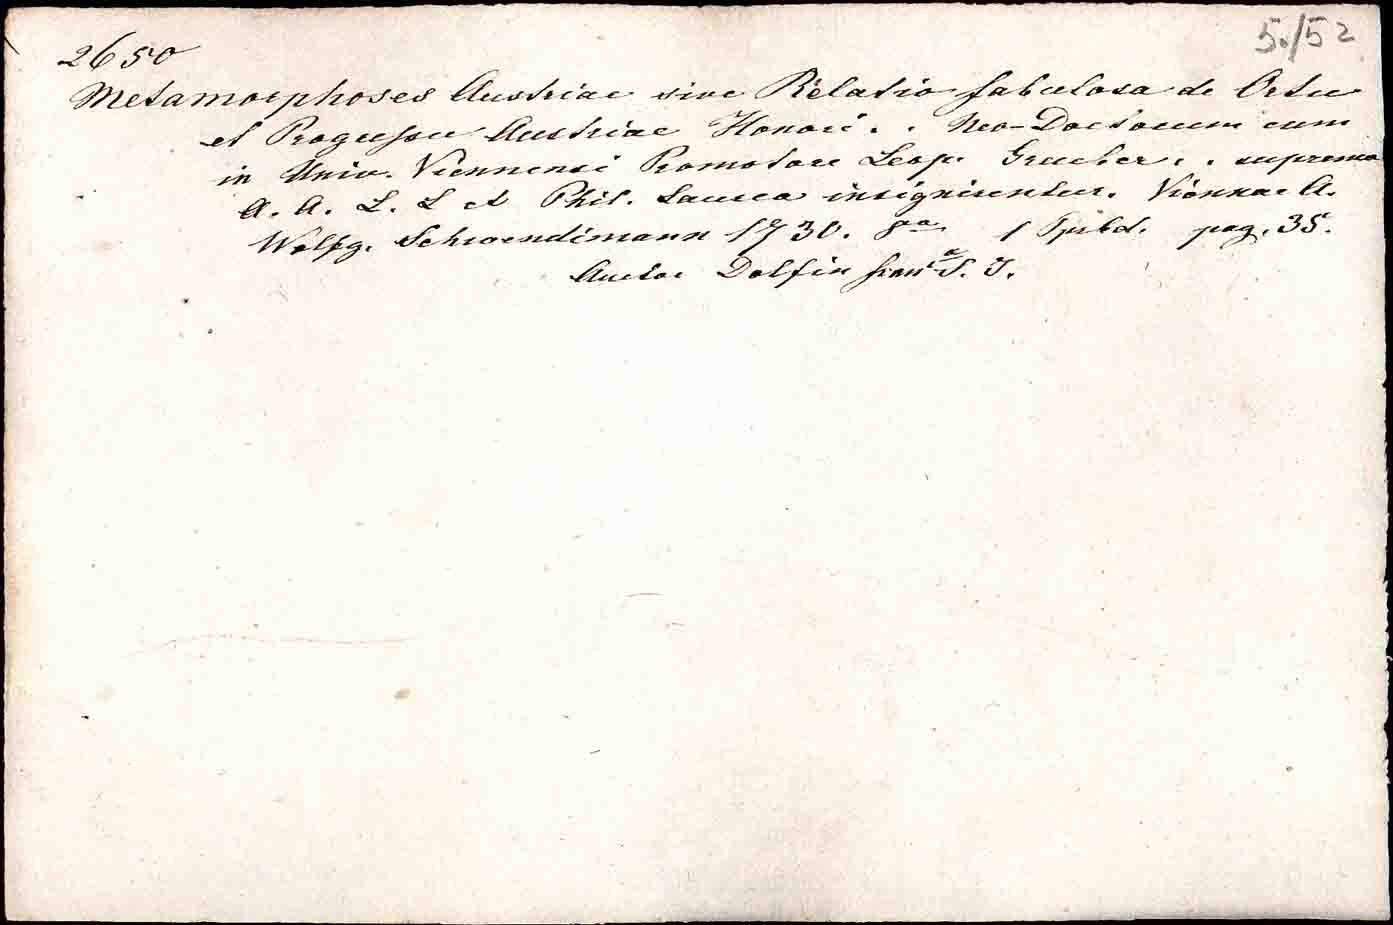 5./52
2650
Metamorphoses Austriae sive Relatio fabulosa de Ortu
et Progressu Austriae Honori . . Neo-Doctorum cum
in Univ. Viennensi Promotore Leop. Grueber . . suprema
A. A. L. L et Phil. Laurea insignirentur. Viennae A.
Wolfg. Schwendimann 1730. 8º 1 Ppbd. pag. 35.
Auctor Dolfin S. J.